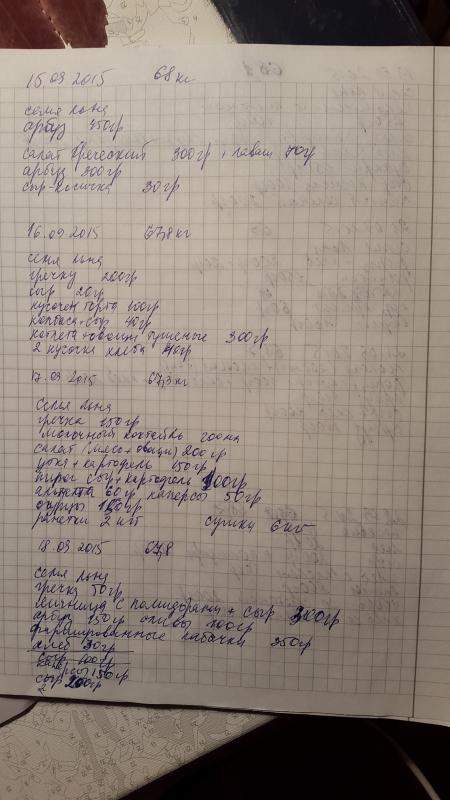 15.09.2015 68 кг
семя льна
арбуз 450гр
салат Греческий 300гр + лаваш 70гр
арбуз 300гр
сыр-косичка 30гр
16.09.2015 67,8 кг
семя льна
гречку 200гр
сыр 20гр
кусочек торта 100гр
колбаса+сыр 40гр
котлета+овощи тушеные 300гр
2 кусочка хлеба 40гр
17.09.2015 67,3 кг
семя льна
гречка 150гр
молочный коктейль 200мл
салат (мясо+овощи) 200гр
+картофель 150гр
пирог сыр+картофель 100гр
60гр, каперсы 50гр
огурцы
ранетки 2 шт сушки 6 шт
18.09.2015 67,8
семя льна
гречка 50гр
яичница с помидорами + сыр 300гр
арбуз 150гр оливы 100гр
фаршированные кабачки 350гр
хлеб 30гр
сыр 100гр
150гр
сыр 200гр